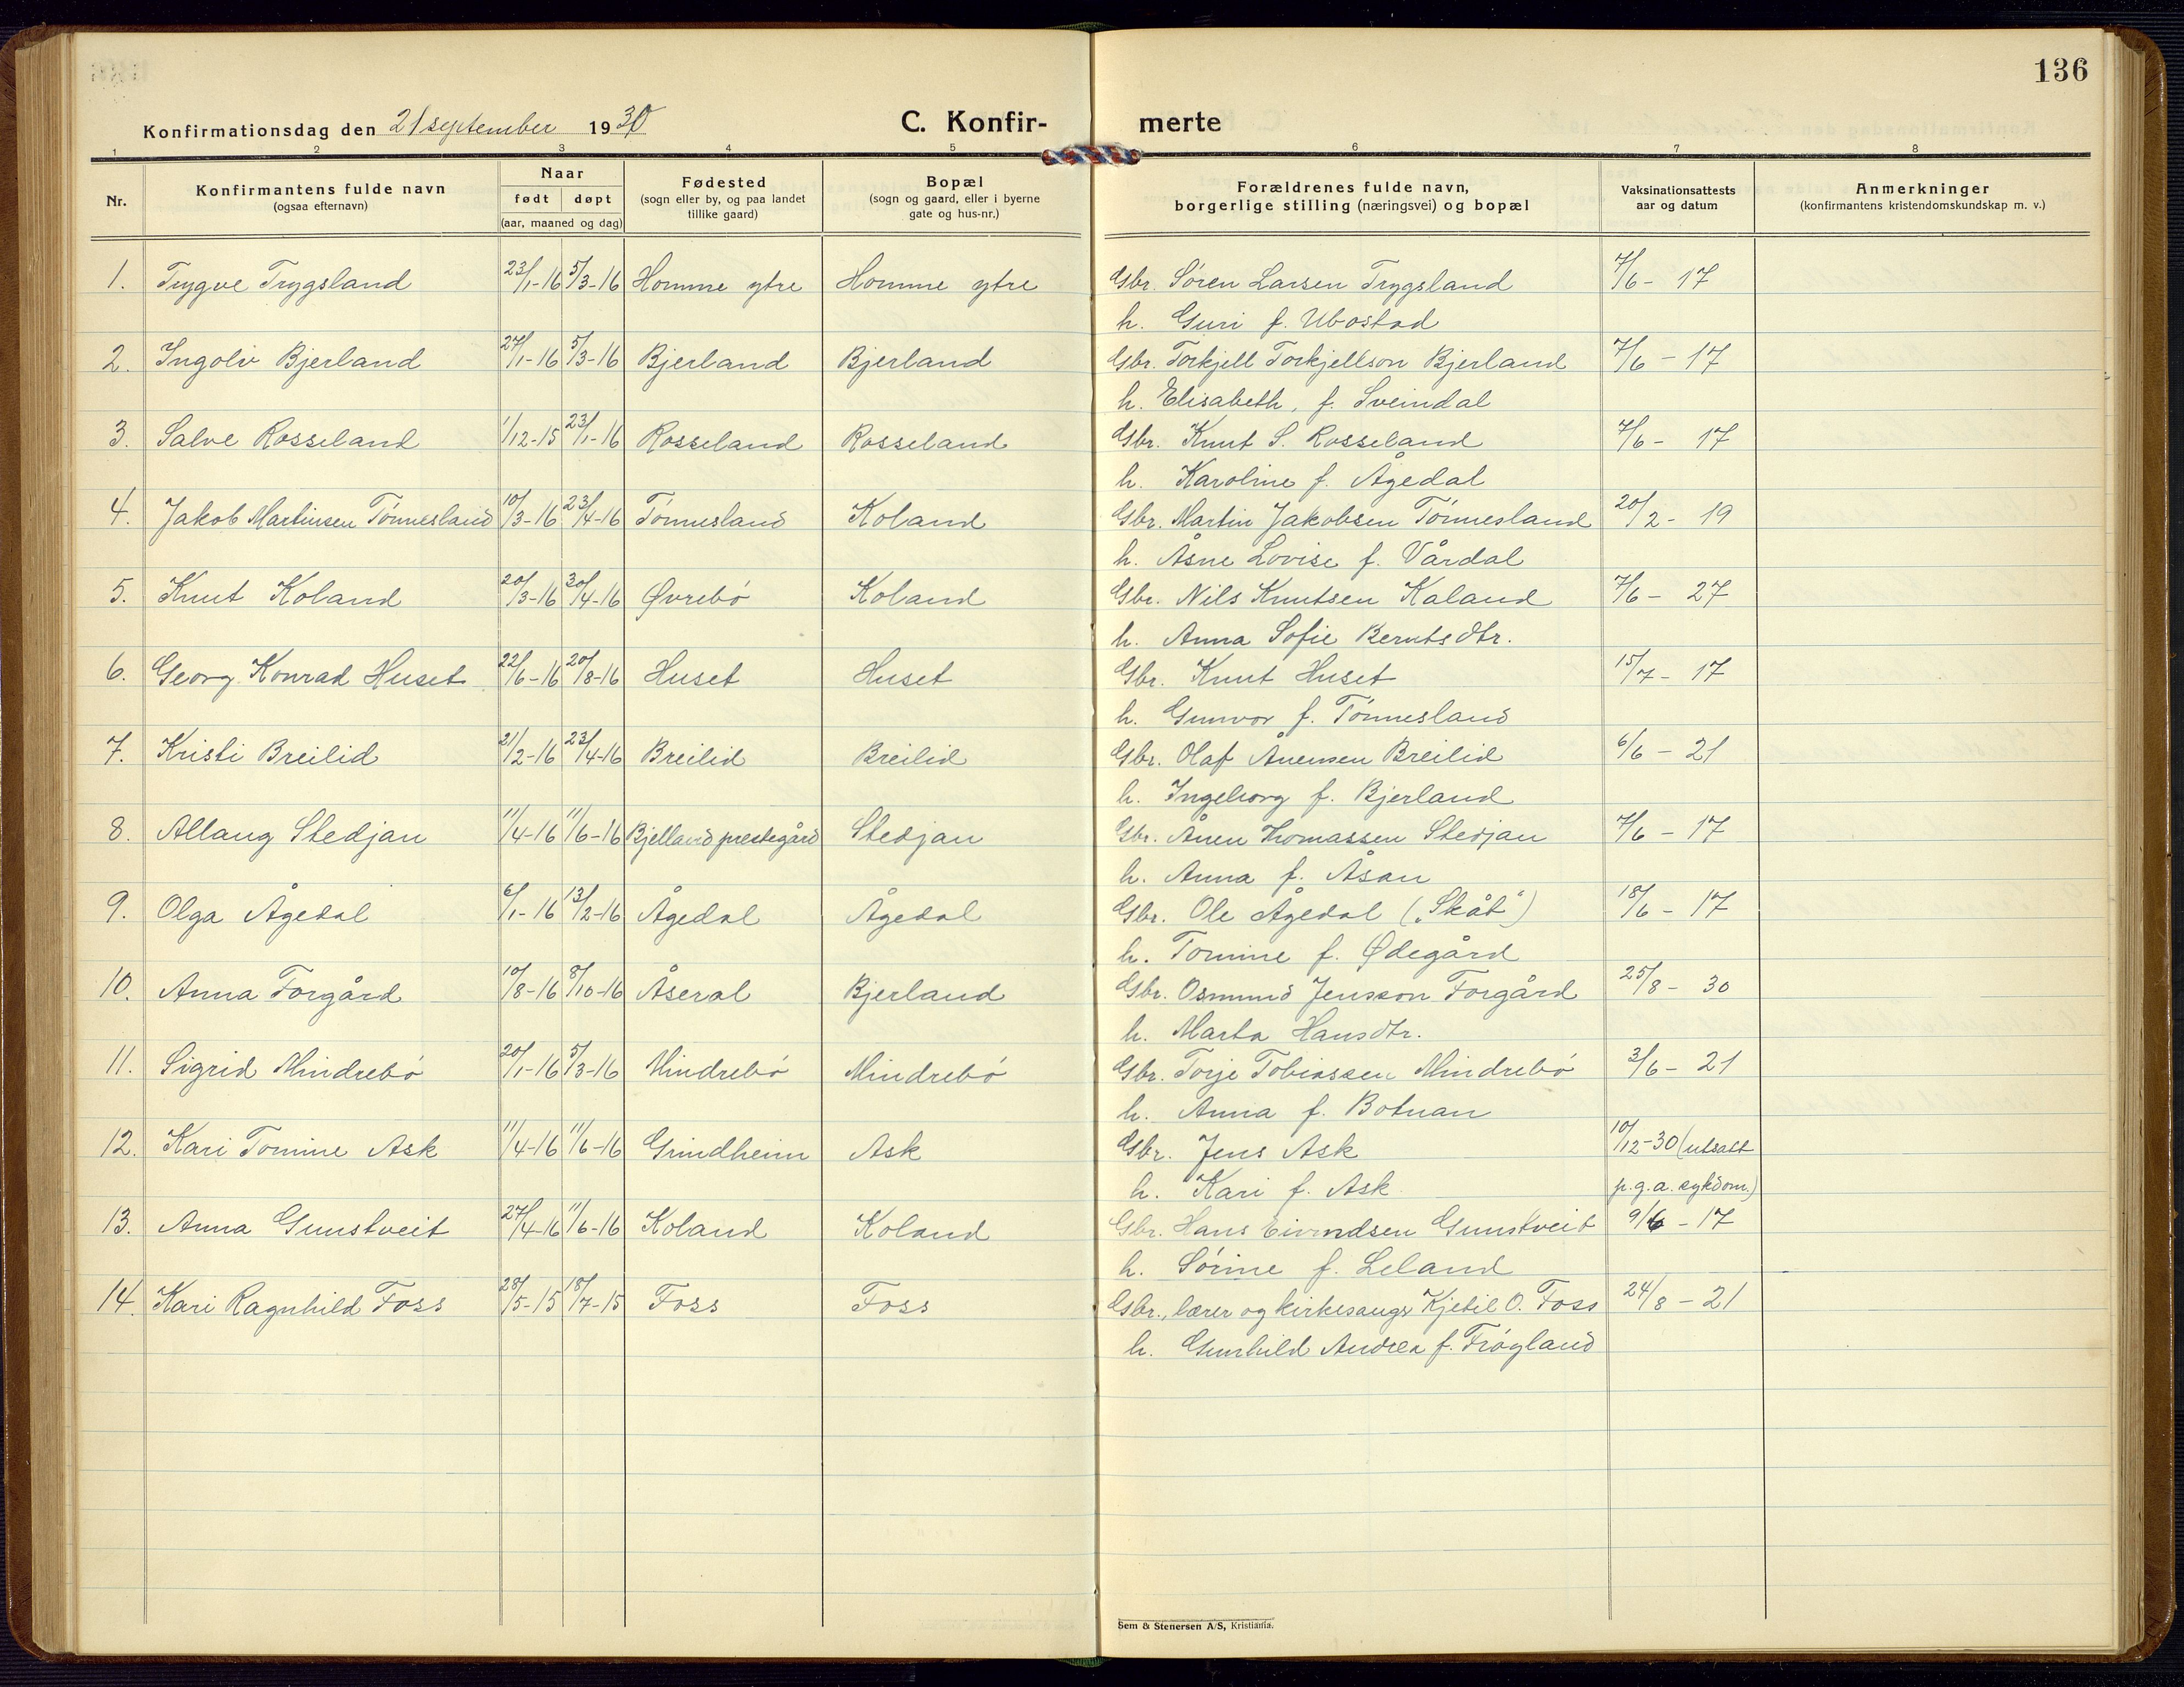 136
Konfirmationsdag den 21 september 1930
C. Konfir- merte
1 2 3 4 5 6 7 8
Nr.
Konfirmantens fulde navn
(ogsaa efternavn)
Naar
født døpt
(aar, maaned og dag)
Fødested
(sogn eller by, og paa landet
tillike gaard)
Bopæl
(sogn og gaard, eller i byerne
gate og hus-nr.)
Forældrenes fulde navn,
borgerlige stilling (næringsvei) og bopæl
Vaksinationsattests
aar og datum
Anmerkninger
(konfirmantens kristendomskundskap m. v.)
1. Trygve Trygsland 23/1-16 5/3-16 Homme ytre Homme ytre Gbr. Søren Larsen Trygsland 7/6 - 17
h. Guri f. Ubostad
2. Ingolv Bjerland 27/1-16 5/3-16 Bjerland Bjerland Gbr. Torkjell Torkjellson Bjerland 7/6 - 17
h. Elisabeth, f. Sveindal
3. Salve Rosseland 1/12-15 23/1-16 Rosseland Rosseland Gbr. Knut S. Rosseland 7/6 - 17
h. Karoline f. Ågedal
4. Jakob Martinsen Tønnesland 10/3-16 23/4-16 Tønnesland Koland Gbr. Martin Jakobsen Tønnesland 20/2 - 19
h. Åsne Lovise f. Vårdal
5. Knut Koland 20/3-16 30/4-16 Øvrebø Koland Gbr. Nils Knutsen Kaland 7/6 - 27
h. Anna Sofie Berntsdtr.
6. Georg Konrad Huset 22/6-16 20/8-16 Huset Huset Gbr. Knut Huset 15/7 - 17
h. Gunvor f. Tønnesland
7. Kristi Breilid 21/2-16 23/4-16 Breilid Breilid Gbr. Olaf Ånensen Breilid 6/6 - 21
h. Ingeborg f. Bjerland
8. Allaug Stedjan 11/4-16 11/6-16 Bjelland prestegård Stedjan Gbr. Ånen Thomassen Stedjan 7/6 - 17
h. Anna f. Åsan
9. Olga Ågedal 6/1-16 13/2-16 Ågedal Ågedal Gbr. Ole Ågedal („Skåt“) 18/6 - 17
h. Tomine f. Ødegård
10. Anna Forgård 10/8-16 8/10-16 Åseral Bjerland Gbr. Osmund Jensson Forgård 25/8 - 30
h. Marta Hansdtr.
11. Sigrid Mindrebø 20/1-16 5/3-16 Mindrebø Mindrebø Gbr. Torje Tobiassen Mindrebø 3/6 - 21
h. Anna f. Botnan
12. Kari Tomine Ask 11/4-16 11/6-16 Grindheim Ask Gbr. Jens Ask 10/12-30 (utsatt
h. Kari f. Ask p.g.a. sykdom.)
13. Anna Gunstveit 27/4-16 11/6-16 Koland Koland Gbr. Hans Eivindsen Gunstveit 9/6 - 17
h. Sørine f. Leland
14. Kari Ragnhild Foss 28/5-15 18/7-15 Foss Foss Gbr., lærer og kirkesangr Kjetil O. Foss 24/8 - 21
h. Gunhild Andrea f. Frøyland
Sem & Stenersen A/S, Kristiania.